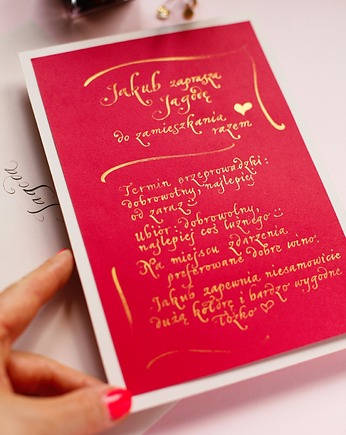 Jakub zaprasza
Jagodę
do zamieszkania razem
Termin przeprowadzki:
dobrowolny, najlepiej
od zaraz :)
ubiór: dobrowolny,
najlepiej coś luźnego :)
Na miejscu zdarzenia
preferowane dobre wino.
Jakub zapewnia niesamowicie
dużą kołdrę i bardzo wygodne
łóżko ♡
Jagoda